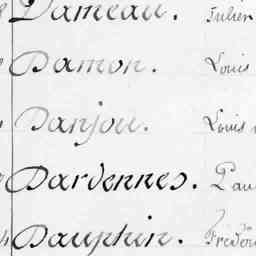 Dameau. Julien
Damon. Louis
Danjou. Louis
Dardennes.
Dauphin.